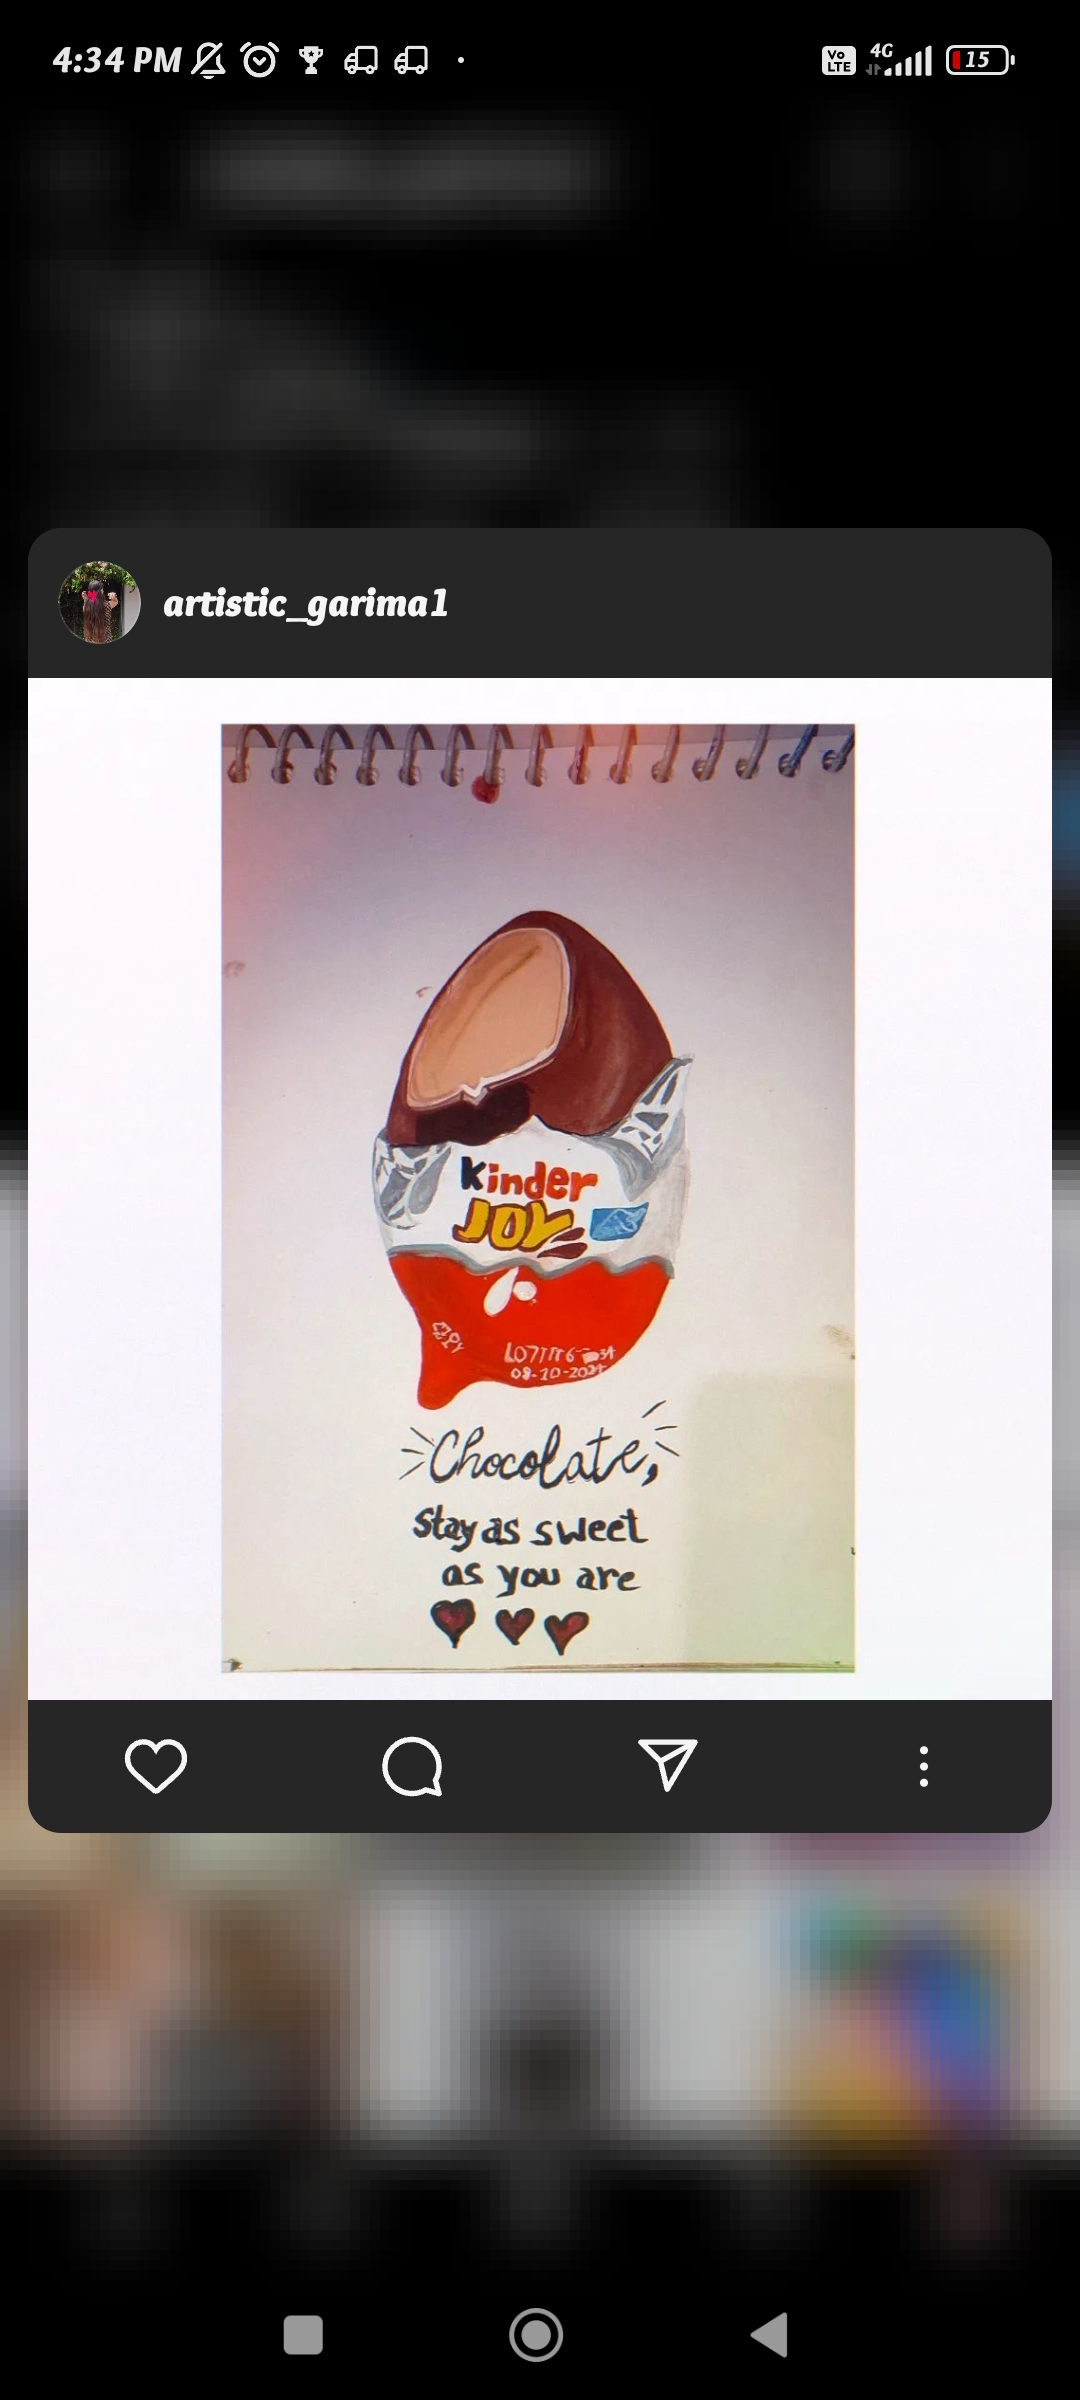 4:34 PM
Vo LTE
4G
15
artistic_garima1
Kinder
JOY
08-10-2024
Chocolate,
Stay as sweet
as you are